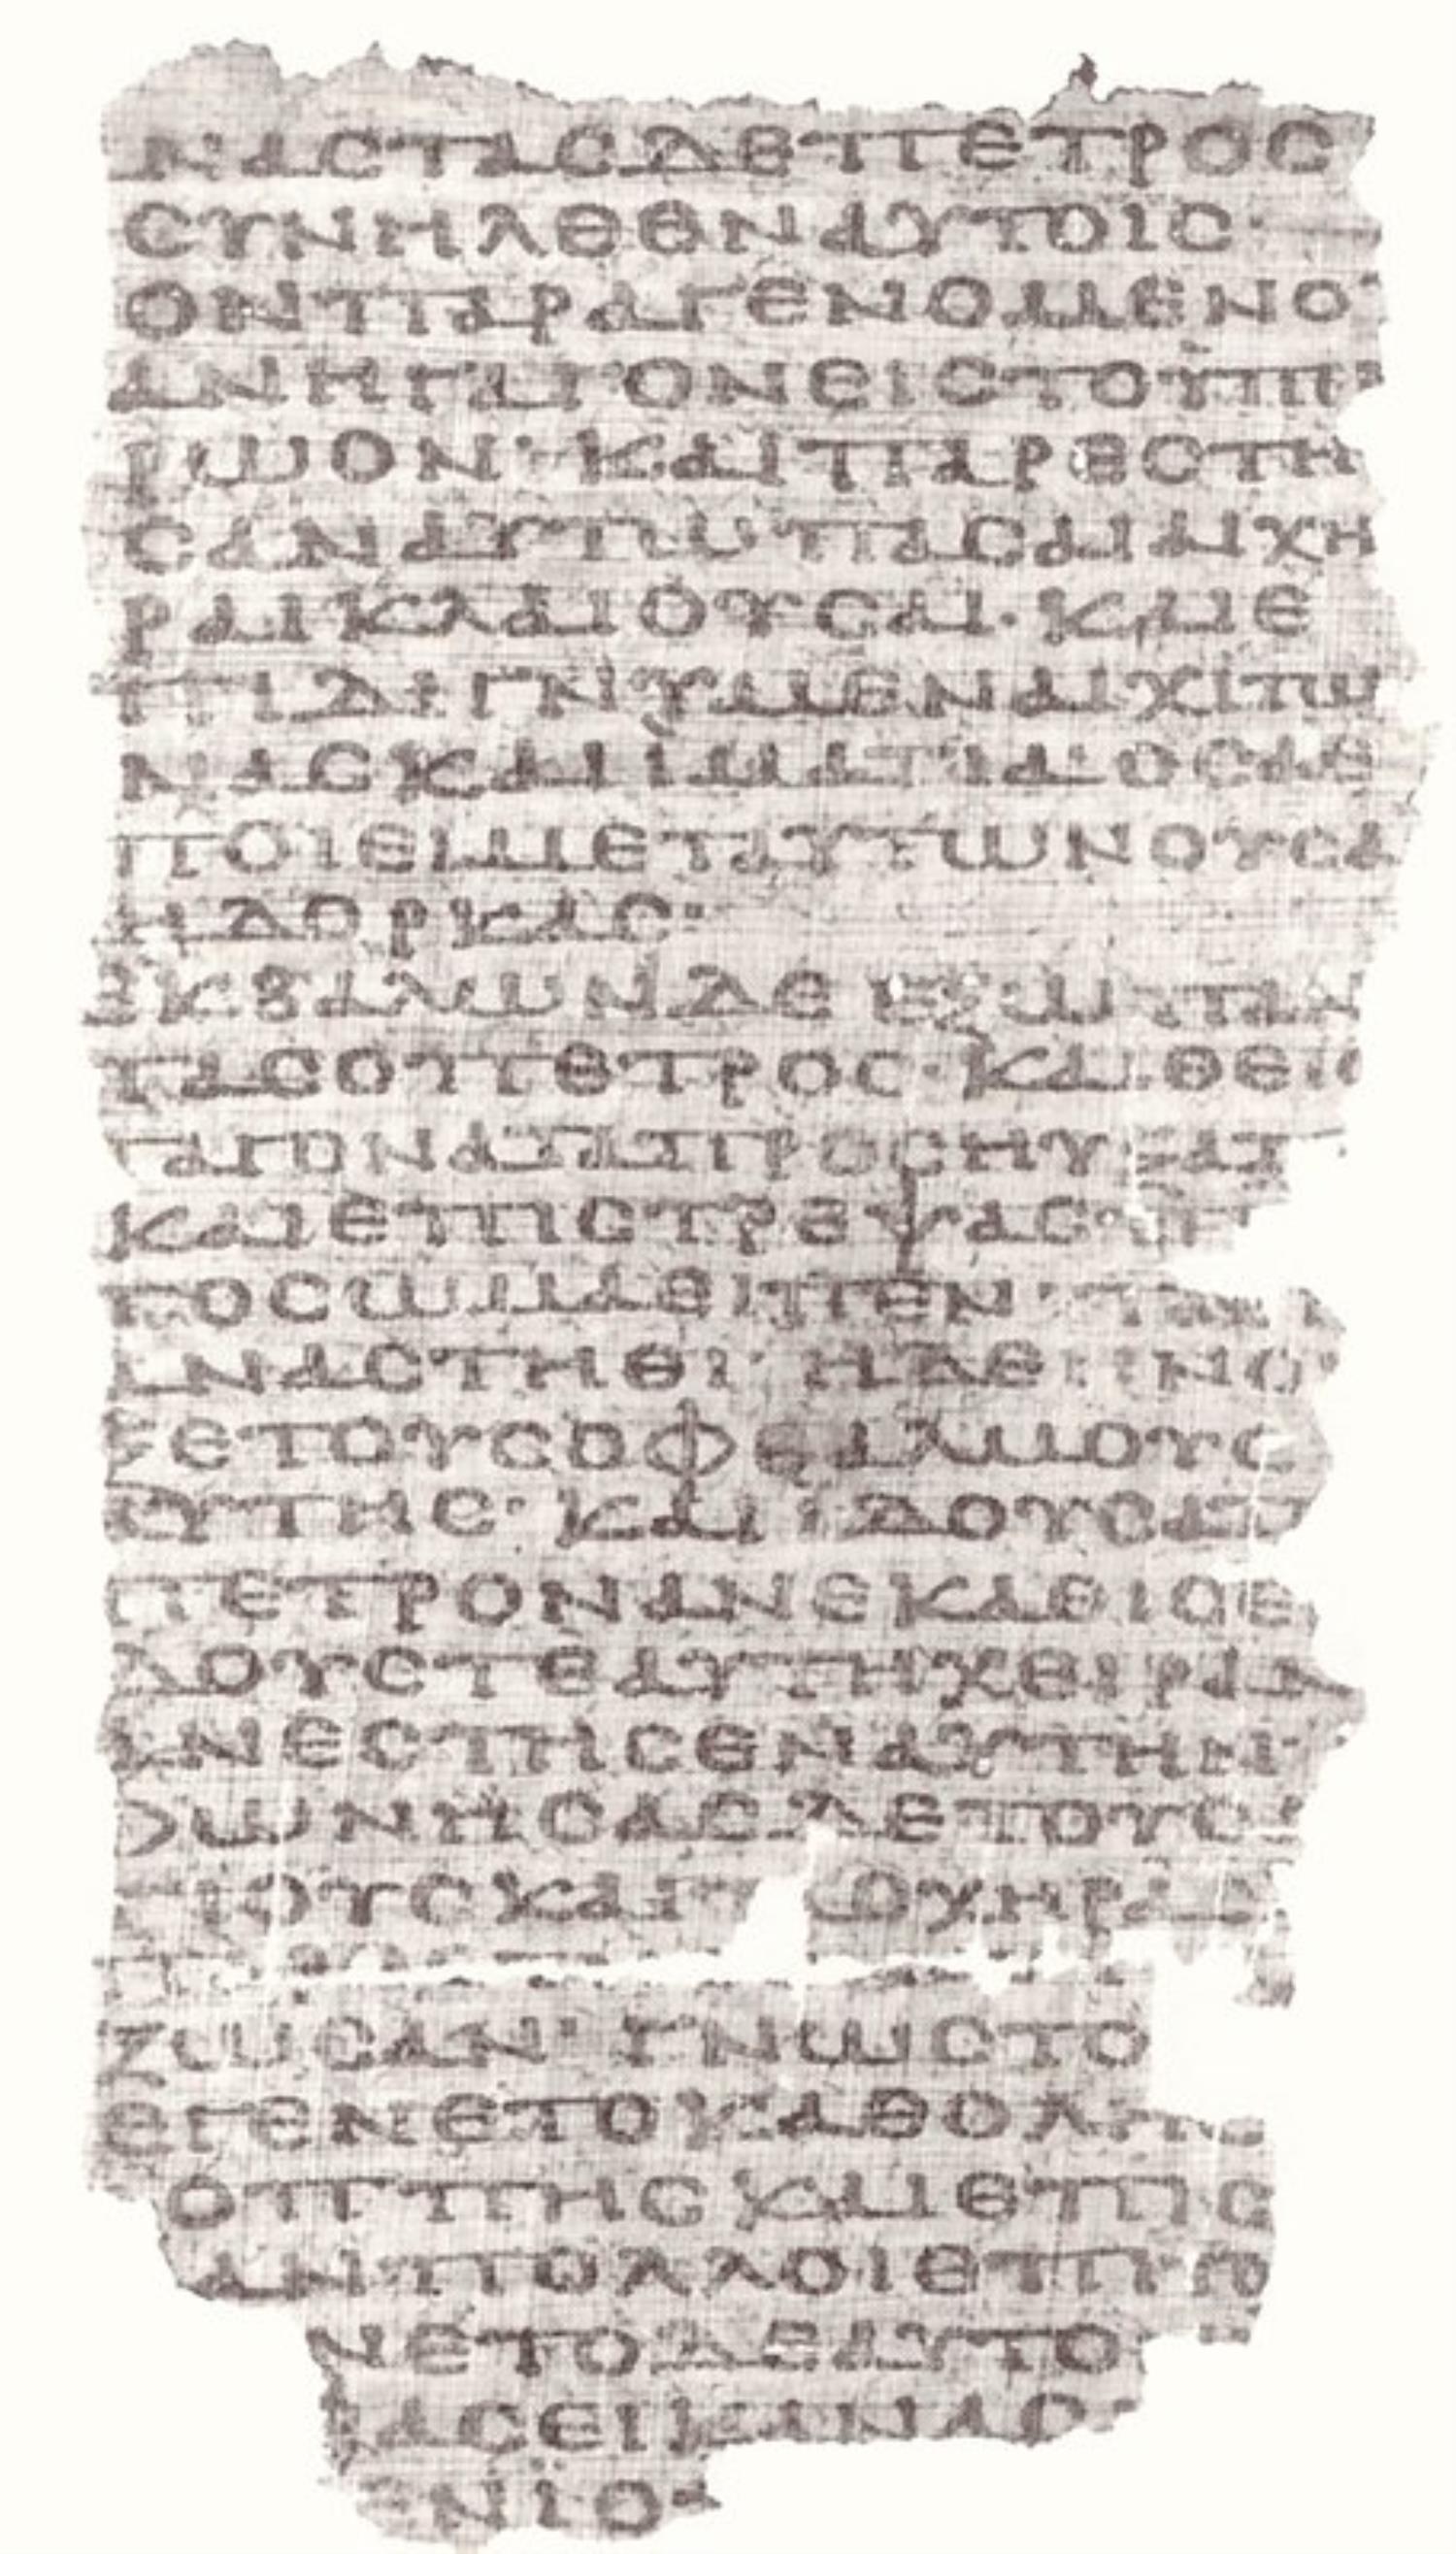 ΝΑСΤΑСΔΕΠΕΤΡΟС
СΥΝΗΛΘΕΝΑΥΤΟΙС·
ΟΝΠΑΡΑΓΕΝΟΜΕΝΟ
ΑΝΗΓΑΓΟΝΕΙСΤΟΥΠΕ
ΡΩΟΝ· ΚΑΙΠΑΡΕСΤΗ
СΑΝΑΥΤΩΠΑСΑΙΑΙΧΗ
ΡΑΙΚΛΑΙΟΥСΑΙ· ΚΑΙΕ
ΠΙΔΙΓΝΥΜΕΝΑΙΧΙΤΩ
ΝΑСΚΑΙΙΜΑΤΙΑΟСΑΕ
ΠΟΙΕΙΜΕΤΑΥΤΩΝΟΥСΑ
ΗΔΟΡΚΑС·
ΕΚΒΑΛΩΝΔΕ ΕΞΩΠΑΝ
ΤΑСΟΠΕΤΡΟС· ΚΑΙΘΕΙС
ΤΑΓΟΝΑΤΑΠΡΟСΗΥΞΑΤ
ΚΑΙΕΠΙСΤΡΕΨΑС·ΠΡ
ΤΟСΩΜΑΕΙΠΕΝ·
ΑΝΑСΤΗΘΙ· ΗΔΕ ΗΝΟΙ
ΞΕΤΟΥСΟΦΘΑΛΜΟΥС
ΑΥΤΗС· ΚΑΙΙΔΟΥСΑΤ
ΠΕΤΡΟΝΑΝΕΚΑΘΙСΕ
ΔΟΥСΤΕΑΥΤΗΧΕΙΡΑΝ
ΑΝΕСΤΗСΕΝΑΥΤΗΝ·
ΦΩΝΗСΑСΔΕΤΟΥСΑ
ΓΙΟΥСΚΑΙΤ ΟΥΧΗΡΑΣ
ΖΩСΑΝ· ΓΝΩСΤΟ
ΕΓΕΝΕΤΟΚΑΘΟΛΗС
ΟΠΠΗСΚΑΙΕΠΙС
ΑΝΠΟΛΛΟΙΕΠΙΤΟ
ΝΕΤΟΔΕΑΥΤΟ
ΡΑСΕΙΚΑΝΑС
ΕΝΙΟ